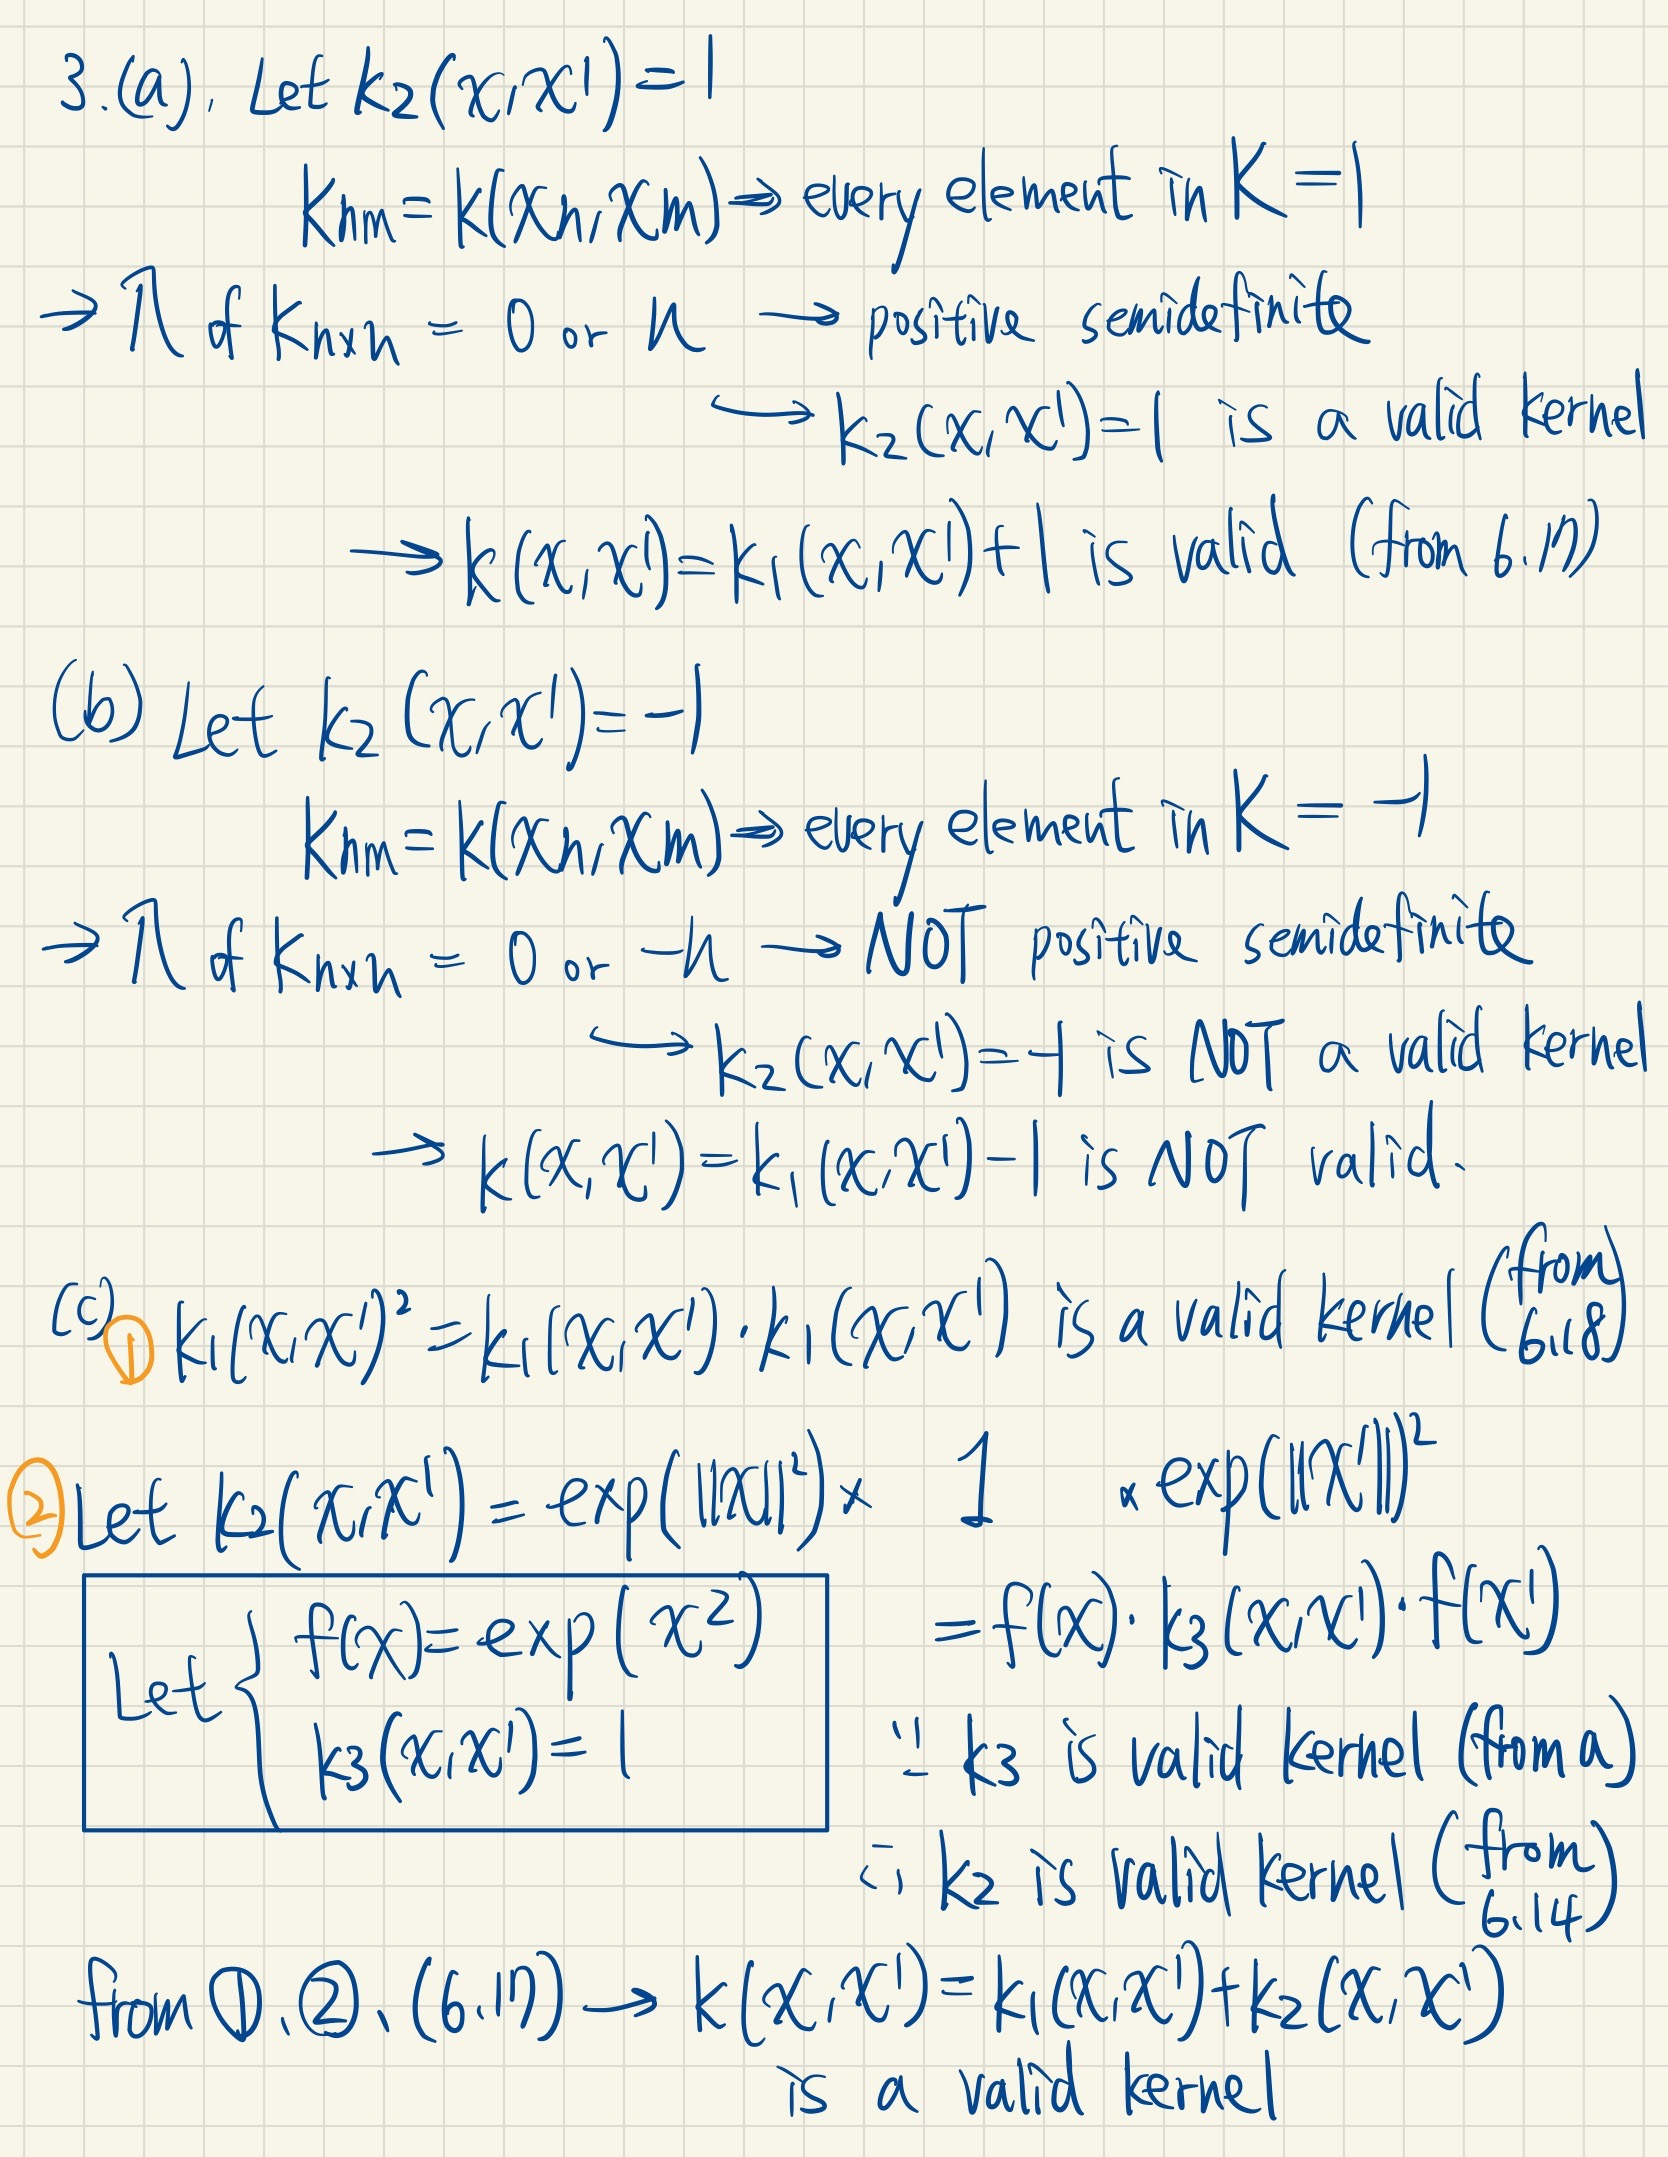 3.(a). Let k₂(x,x')=1
Knm=k(xn,xm)→every element in K=1
→λ of Kn×n = 0 or n → positive semidefinite
↪k₂(x,x')=1 is a valid kernel
→k(x,x')=k₁(x,x')+1 is valid (from 6.17)
(b) Let k₂(x,x')=-1
Knm=k(xn,xm)→every element in K=-1
→λ of Kn×n = 0 or -n → NOT positive semidefinite
↪k₂(x,x')=-1 is NOT a valid kernel
→ k(x,x')=k₁(x,x')-1 is NOT valid.
(c) ① k₁(x,x')²=k₁(x,x')·k₁(x,x') is a valid kernel (from 6.18)
② Let k₂(x,x')=exp(||x||²)× 1 ×exp(||x'||)²
=f(x)·k₃(x,x')·f(x')
Let { f(x)=exp(x²)
k₃(x,x')=1
∵ k₃ is valid kernel (from a)
∴ k₂ is valid kernel (from 6.14)
from ①、②、(6.17)→ k(x,x')=k₁(x,x')+k₂(x,x')
is a valid kernel